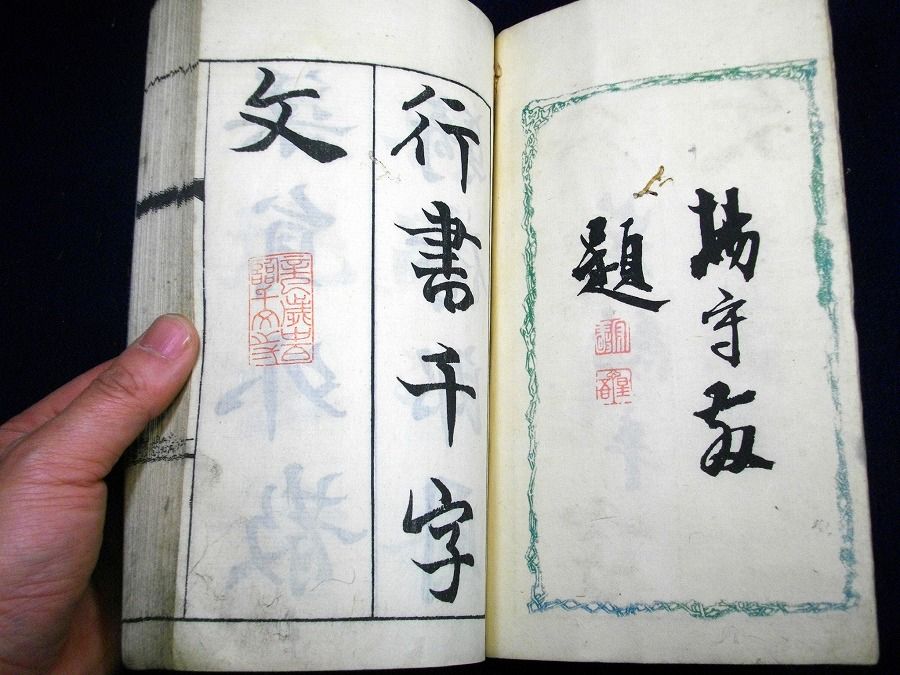 楊守敬
題
行書千字
文